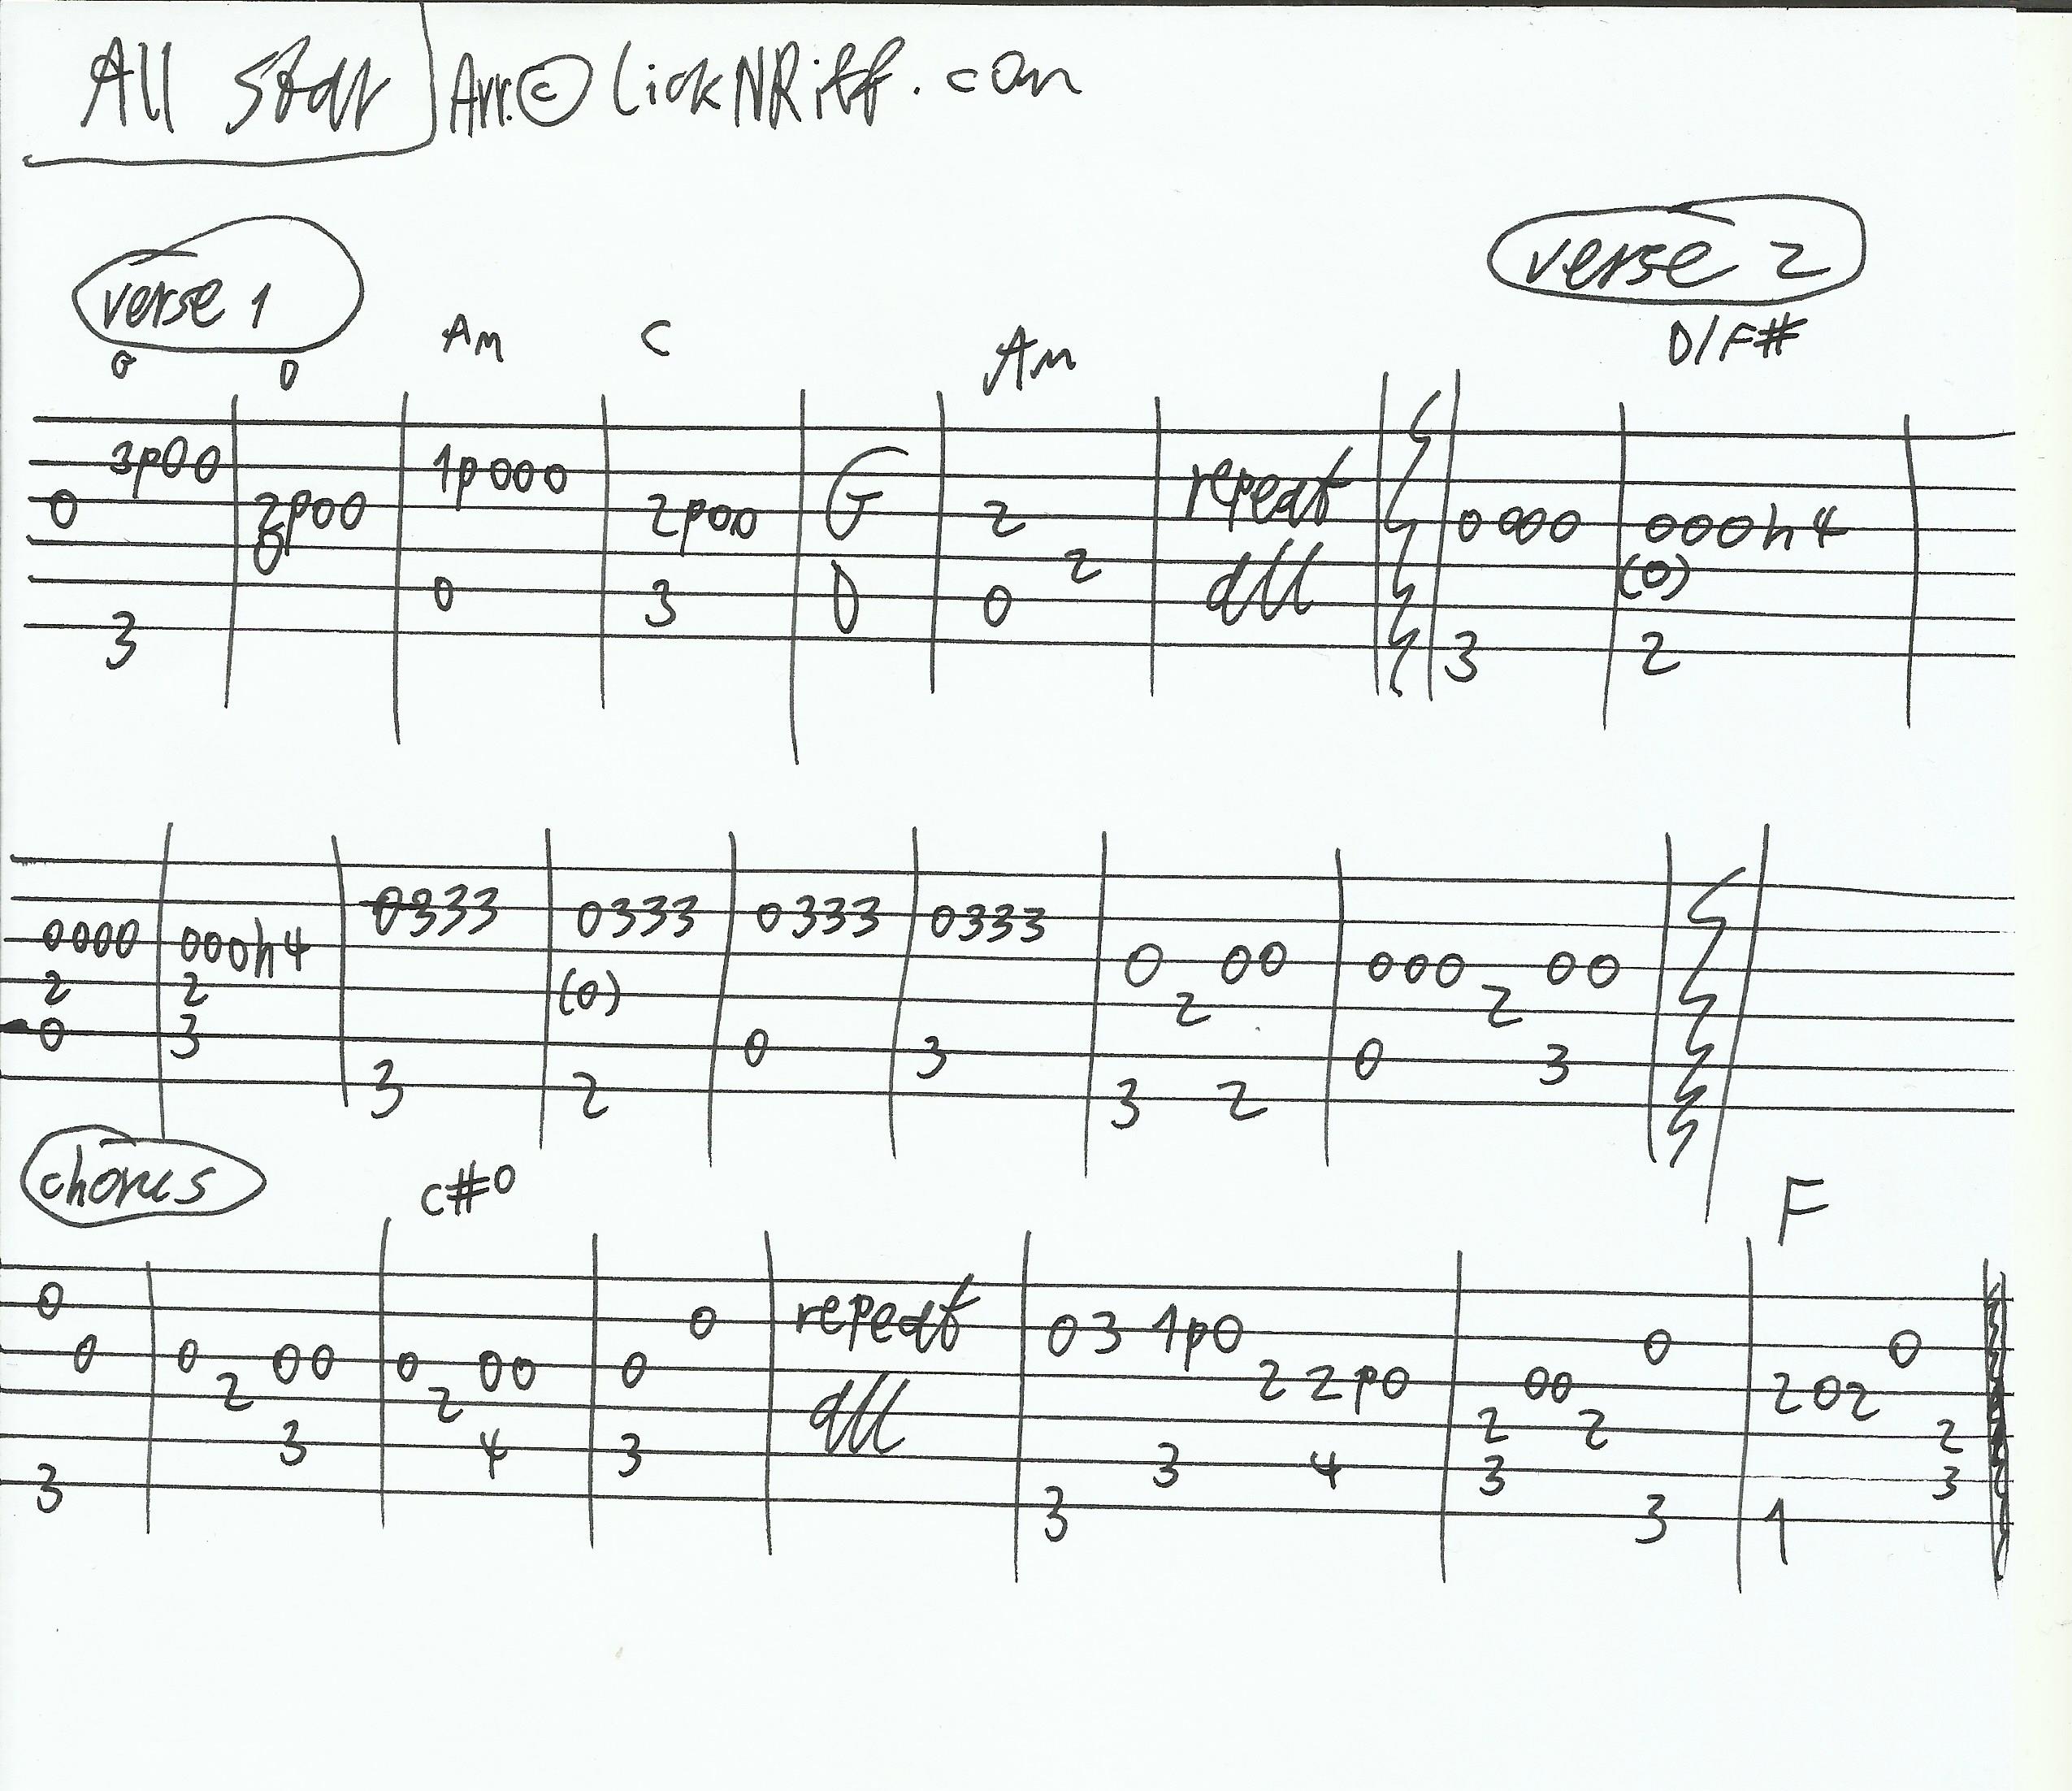 All Star Arr.© LickNRiff.com
verse 1 verse 2
G D Am C Am D/F#
3p00 1p000
0 2p00 2p00 G 2 repeat 0000 000h4
0 2 (0)
0 3 D 0 all
3 3 2
0333 0333 0333 0333
0000 000h4 0 00 000 00
2 2 (0) 2 2
0 3 0 3 0 3
3 2 3 2
chorus C#° F
0 0 repeat 03 1p0 0 0
0 0 00 0 00 0 2 2p0 00 202
2 2 all 2 2 2
3 4 3 3 4 3 3
3 3 3 1